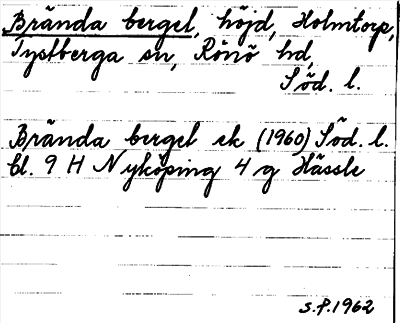 Brända berget, höjd, Holmtorp,
Tystberga sn, Rönö hd,
Söd. l.
Brända berget ek (1960) Söd. l.
bl. 9 H Nyköping 4 g Hässle
S.P. 1962